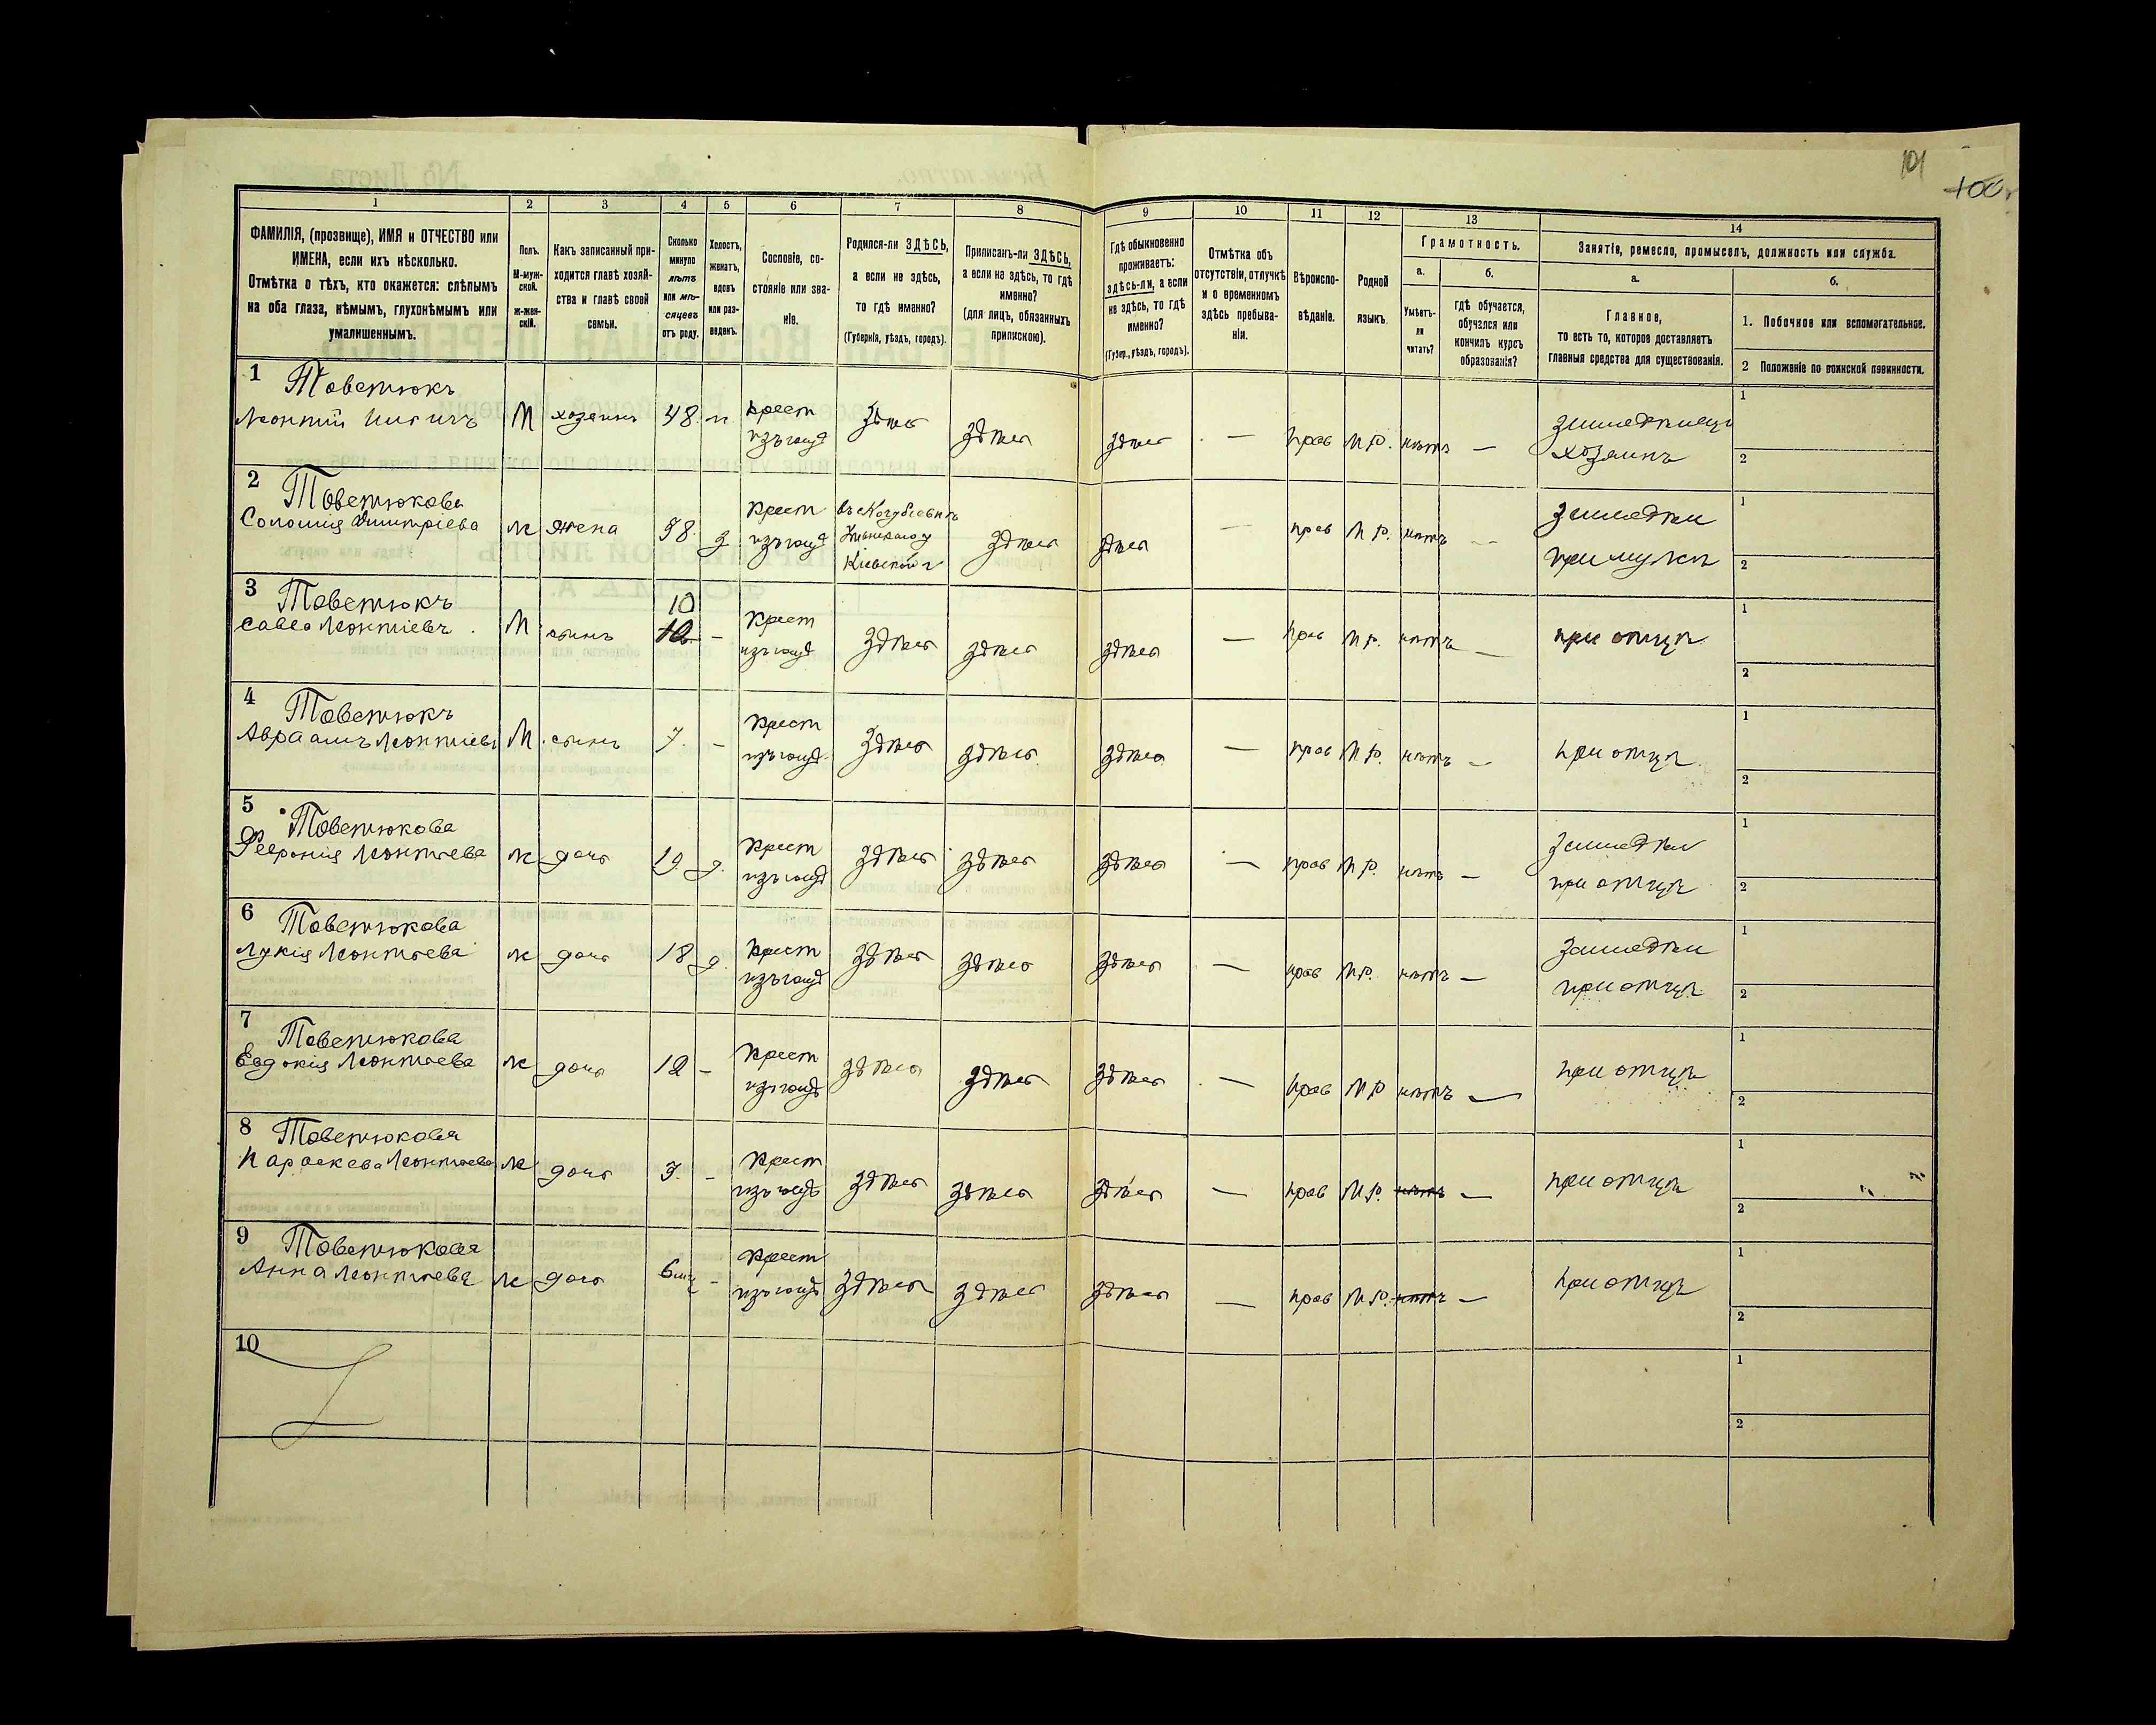 101
100
1
2
3
4
5
6
7
8
9
10
11
12
13
14
ФАМИЛІЯ, (прозвище), ИМЯ и ОТЧЕСТВО или
ИМЕНА, если ихъ нѣсколько.
Отмѣтка о тѣхъ, кто окажется: слѣпымъ
на оба глаза, нѣмымъ, глухонѣмымъ или
умалишеннымъ.
Полъ.
М-муж-
ской.
ж-жен-
скій.
Какъ записанный при-
ходится главѣ хозяй-
ства и главѣ своей
семьи.
Сколько
минуло
лѣтъ
или мѣ-
сяцевъ
отъ роду.
Холостъ,
женатъ,
вдовъ
или раз-
веденъ.
Сословіе, со-
стояніе или зва-
ніе.
Родился-ли ЗДѢСЬ,
а если не здѣсь,
то гдѣ именно?
(Губернія, уѣздъ, городъ).
Приписанъ-ли ЗДѢСЬ,
а если не здѣсь, то гдѣ
именно?
(для лицъ, обязанныхъ
припискою).
Гдѣ обыкновенно
проживаетъ:
здѣсь-ли, а если
не здѣсь, то гдѣ
именно?
(Губер., уѣздъ, городъ).
Отмѣтка объ
отсутствіи, отлучкѣ
и о временномъ
здѣсь пребыва-
ніи.
Вѣроиспо-
вѣданіе.
Родной
языкъ.
Грамотность.
а.
Умѣетъ-
ли
читать?
б.
гдѣ обучается,
обучался или
кончилъ курсъ
образованія?
Занятіе, ремесло, промыселъ, должность или служба.
а.
Главное,
то есть то, которое доставляетъ
главныя средства для существованія.
б.
1. Побочное или вспомогательное.
2 Положеніе по воинской повинности.
1 Товстюкъ
Леонтій
М хозяинъ 48. крест здѣсь здѣсь здѣсь — прав М.Р. нѣтъ —
хозяинъ
1
2
2 Товстюкова
Соломія Дмитріева ж жена 38. крест
Кіевской г здѣсь здѣсь — прав М.Р. нѣтъ —
при мужѣ
1
2
3 Товстюкъ
Савва Леонтіевъ М сынъ 10 — крест здѣсь здѣсь здѣсь — прав М.Р. нѣтъ — при отцѣ
1
2
4 Товстюкъ
Авраамъ Леонтіевъ М. сынъ 7. — крест здѣсь здѣсь здѣсь — прав М.Р. нѣтъ — при отцѣ
1
2
5 Товстюкова
Февронія Леонтьева ж дочь 19 д. крест здѣсь здѣсь здѣсь — прав М.Р. нѣтъ —
при отцѣ
1
2
6 Товстюкова
Лукія Леонтьева ж дочь 18 д. крест здѣсь здѣсь здѣсь — прав М.Р. нѣтъ —
при отцѣ
1
2
7 Товстюкова
Евдокія Леонтьева ж дочь 12 — крест здѣсь здѣсь здѣсь — прав М.Р нѣтъ — при отцѣ
1
2
8 Товстюкова
Параскева Леонтьева ж дочь 3. — крест здѣсь здѣсь здѣсь — прав М.Р. нѣтъ — при отцѣ
1
2
9 Товстюкова
Анна Леонтьева ж дочь — крест здѣсь здѣсь здѣсь — прав М.Р. нѣтъ — при отцѣ
1
2
10
1
2